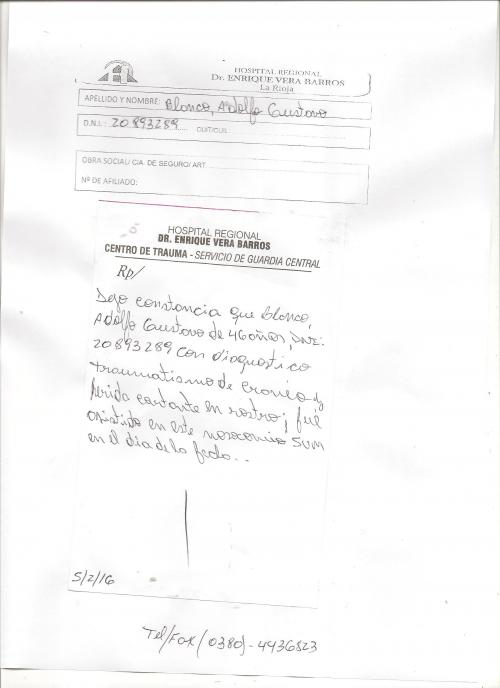 HOSPITAL REGIONAL
Dr. ENRIQUE VERA BARROS
La Rioja
APELLIDO Y NOMBRE: Blanco, Adolfo Gustavo
D.N.I.: 20893289 CUIT/CUIL:
OBRA SOCIAL/ CIA. DE SEGURO/ ART
Nº DE AFILIADO:
HOSPITAL REGIONAL
DR. ENRIQUE VERA BARROS
CENTRO DE TRAUMA - SERVICIO DE GUARDIA CENTRAL
Rp/
Dejo constancia que Blanco,
Adolfo Gustavo de 46 años, DNI:
20893289 con diagnostico
traumatismo de craneo y
herida cortante en rostro; fue
asistido en este nosocomio
en el dia de la fecha..
5/2/16
Tel/Fax (0380)-4436823